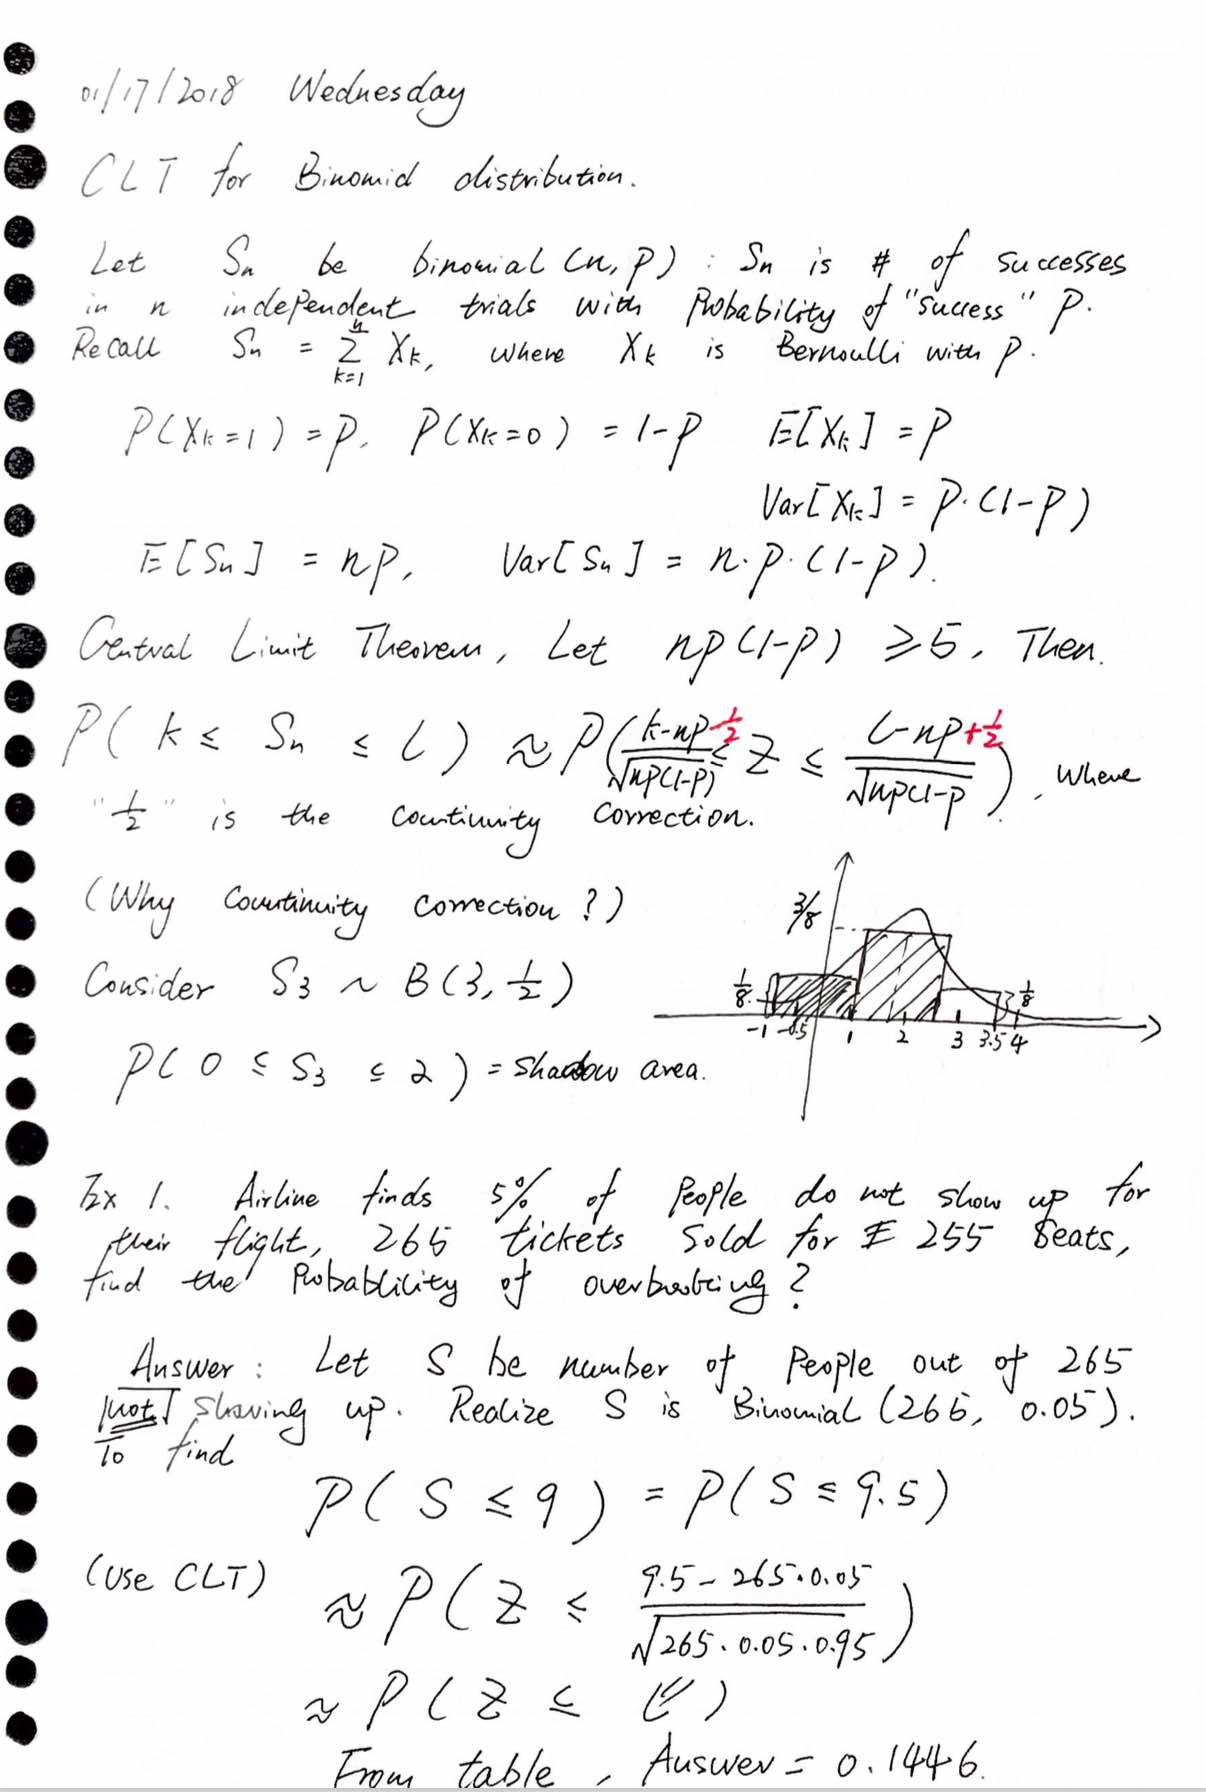 01/17/2018 Wednesday
CLT for Binomid distribution.
Let Sn be binomial (n, p) : Sn is # of successes
in n independent trials with Probability of "Success" P.
Recall Sn = Σ_{k=1}^{n} Xk, where Xk is Bernoulli with p.
P(Xk=1) = p. P(Xk=0) = 1-p E[Xk] = p
Var[Xk] = p·(1-p)
E[Sn] = np, Var[Sn] = n·p·(1-p).
Central Limit Theorem, Let np(1-p) ≥ 5, Then.
P( k ≤ Sn ≤ l ) ≈ P( (k-np-1/2)/√np(1-p) ≤ Z ≤ (l-np+1/2)/√np(1-p ), where
"1/2" is the continuity correction.
(Why Countinuity correction?)
Consider S3 ~ B(3, 1/2)
P( 0 ≤ S3 ≤ 2 ) = Shadow area.
3/8
1/8
1/8
-1 -0.5 1 2 3 3.5 4
Ex 1. Airline finds 5% of People do not show up for
their flight, 265 tickets Sold for 255 Seats,
find the Probablility of overbooking?
Answer: Let S be number of People out of 265
not showing up. Realize S is Binomial (265, 0.05).
To find
P( S ≤ 9 ) = P( S ≤ 9.5)
(Use CLT) ≈ P( Z ≤ (9.5 - 265·0.05)/√265·0.05·0.95 )
≈ P( Z ≤ )
From table, Answer = 0.1446.